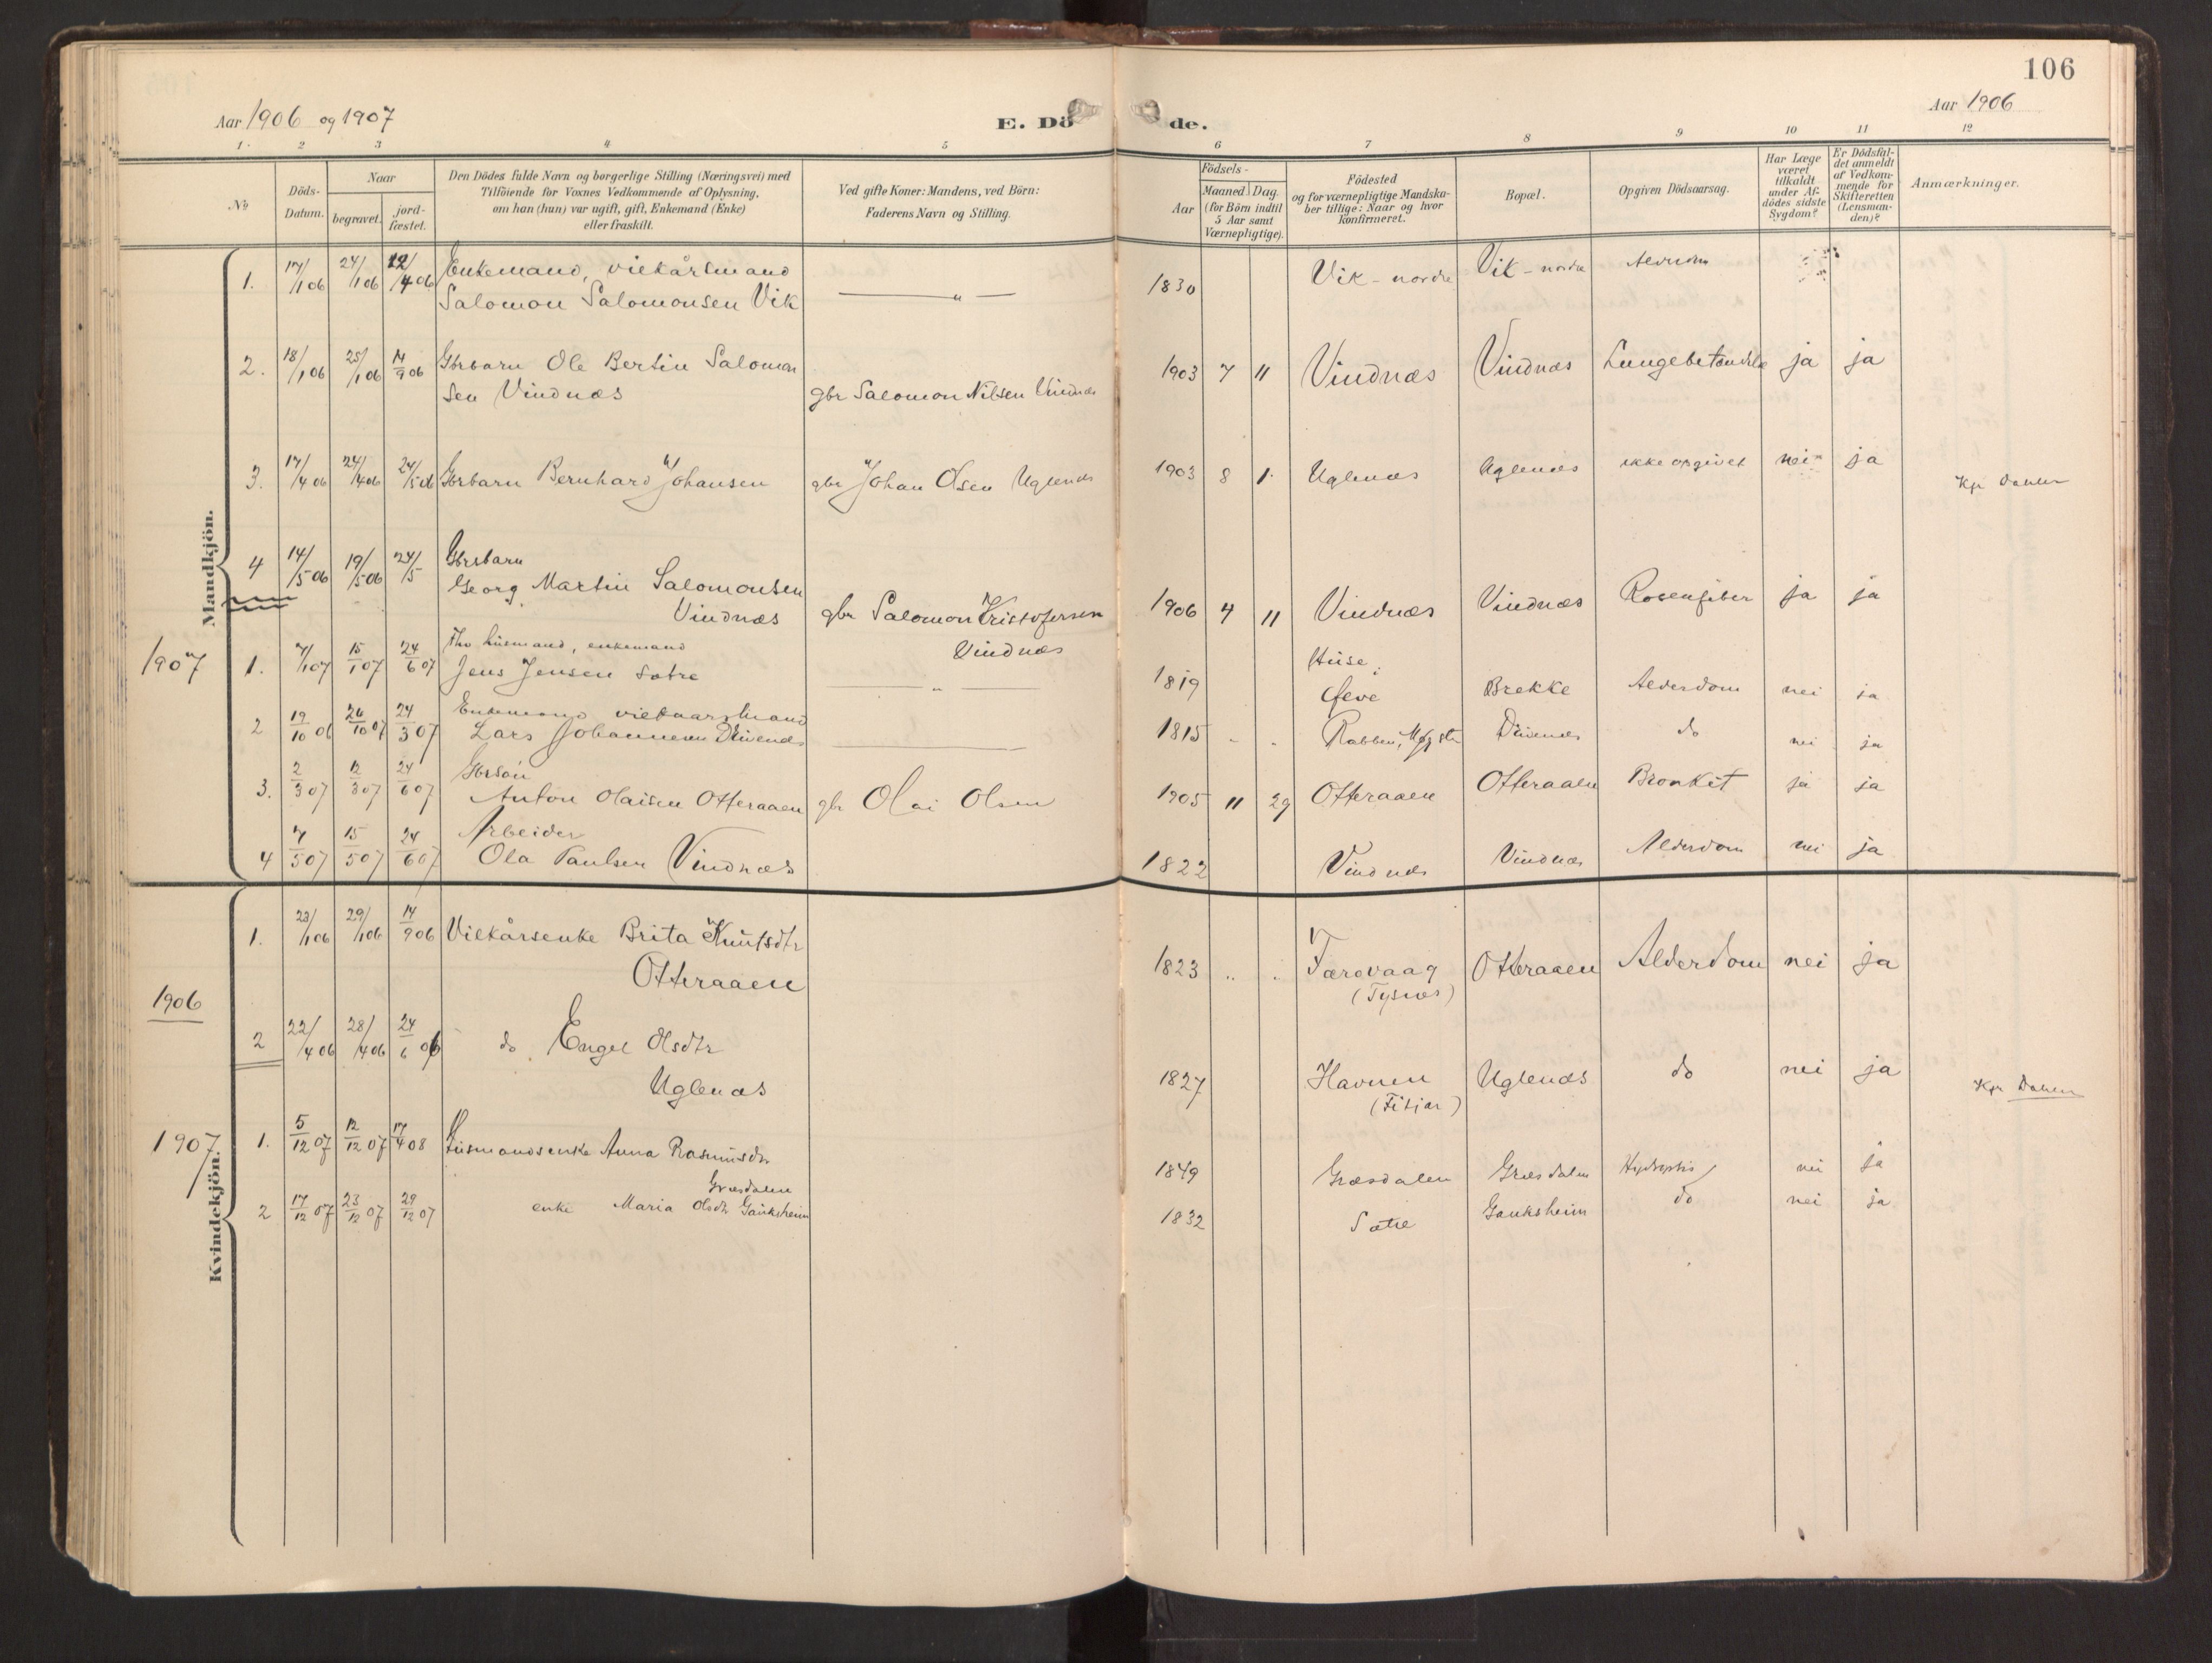 106
Aar 1906 og 1907
E. Dö
de.
Aar 1906
1 2 3 4 5 6 7 8 9 10 11 12
No
Döds-
Datum.
Naar
begravet.
jord-
fæstet.
Den Dödes fulde Navn og borgerlige Stilling (Næringsvei) med
Tilföiende for Voxnes Vedkommende af Oplysning,
om han (hun) var ugift, gift, Enkemand (Enke)
eller fraskilt.
Ved gifte Koner: Mandens, ved Börn:
Faderens Navn og Stilling.
Födsels-
Aar
Maaned. Dag.
(for Börn indtil
5 Aar samt
Værnepligtige).
Födested
og for værnepligtige Mandska-
ber tillige: Naar og hvor
konfirmeret.
Bopæl.
Opgiven Dödsaarsag.
Har Læge
været
tilkaldt
under Af-
dödes sidste
Sygdom?
Er Dödsfal-
det anmeldt
af Vedkom-
mende for
Skifteretten
(Lensman-
den)?
Anmærkninger.
Mandkjön.
1. 17/1 06 24/1 06 12/4 06 Enkemand, vilkårsmand
Salomon Salomonsen Vik — " — 1830 Vik - nordre Vik - nordre
2. 18/1 06 25/1 06 14/9 06 Gbrbarn Ole Bertin Salomon
sen Vindnæs gbr Salomon Nilsen Vindnæs 1903 7 11 Vindnæs Vindnæs Lungebetændelse ja ja
3. 17/4 06 24/4 06 24/5 06 Gbrbarn Bernhard Johansen gbr Johan Olsen Uglenæs 1903 8 1. Uglenæs Uglenæs ikke opgivet nei ja Kpr Dahler
4 14/5 06 19/5 06 24/5 Gbrsbarn
Georg Martin Salomonsen
Vindnæs gbr Salomon Kristofersen
Vindnæs 1906 4 11 Vindnæs Vindnæs Rosenfeber ja ja
1907
1. 7/1 07 15/1 07 24/6 07 enkemand
Jens Jensen Sætre — " — 1819 Brekke Alderdom nei ja
2 19/10 06 26/10 07 24/3 07 Enkemand vilkaarsmand
Lars Johannesen 1815 " " Rabben, Divenes do nei ja
3. 2/3 07 12/3 07 24/6 07 Gbrsøn
Anton Olaisen Otteraaen gbr Olai Olsen 1905 11 29 Otteraaen Otteraaen Bronkit ja ja
4 7/5 07 15/5 07 24/6 07 Arbeider
Ola Paulsen Vindnæs 1822 Vindnæs Vindnæs Alderdom nei ja
1906
1. 23/1 06 29/1 06 14/9 06 Vilkårsenke Brita Knutsdtr
Otteraaen 1823 " " Færøvaag
(Tysnes) Otteraaen Alderdom nei ja
2 22/4 06 28/4 06 24/6 06 do Engel Olsdtr
Uglenæs 1827 Havnen
(Fitjar) Uglenæs do nei ja Kpr Dahler
1907
Kvindekjön.
1. 5/12 07 12/12 07 17/4 08 Husmandsenke Anna Rasmusdtr
Græsdalen 1849 Græsdalen Græsdalen nei ja
2 17/12 07 23/12 07 29/12 07 enke Maria Olsdtr Gauksheim 1832 Sætre Gauksheim do nei ja